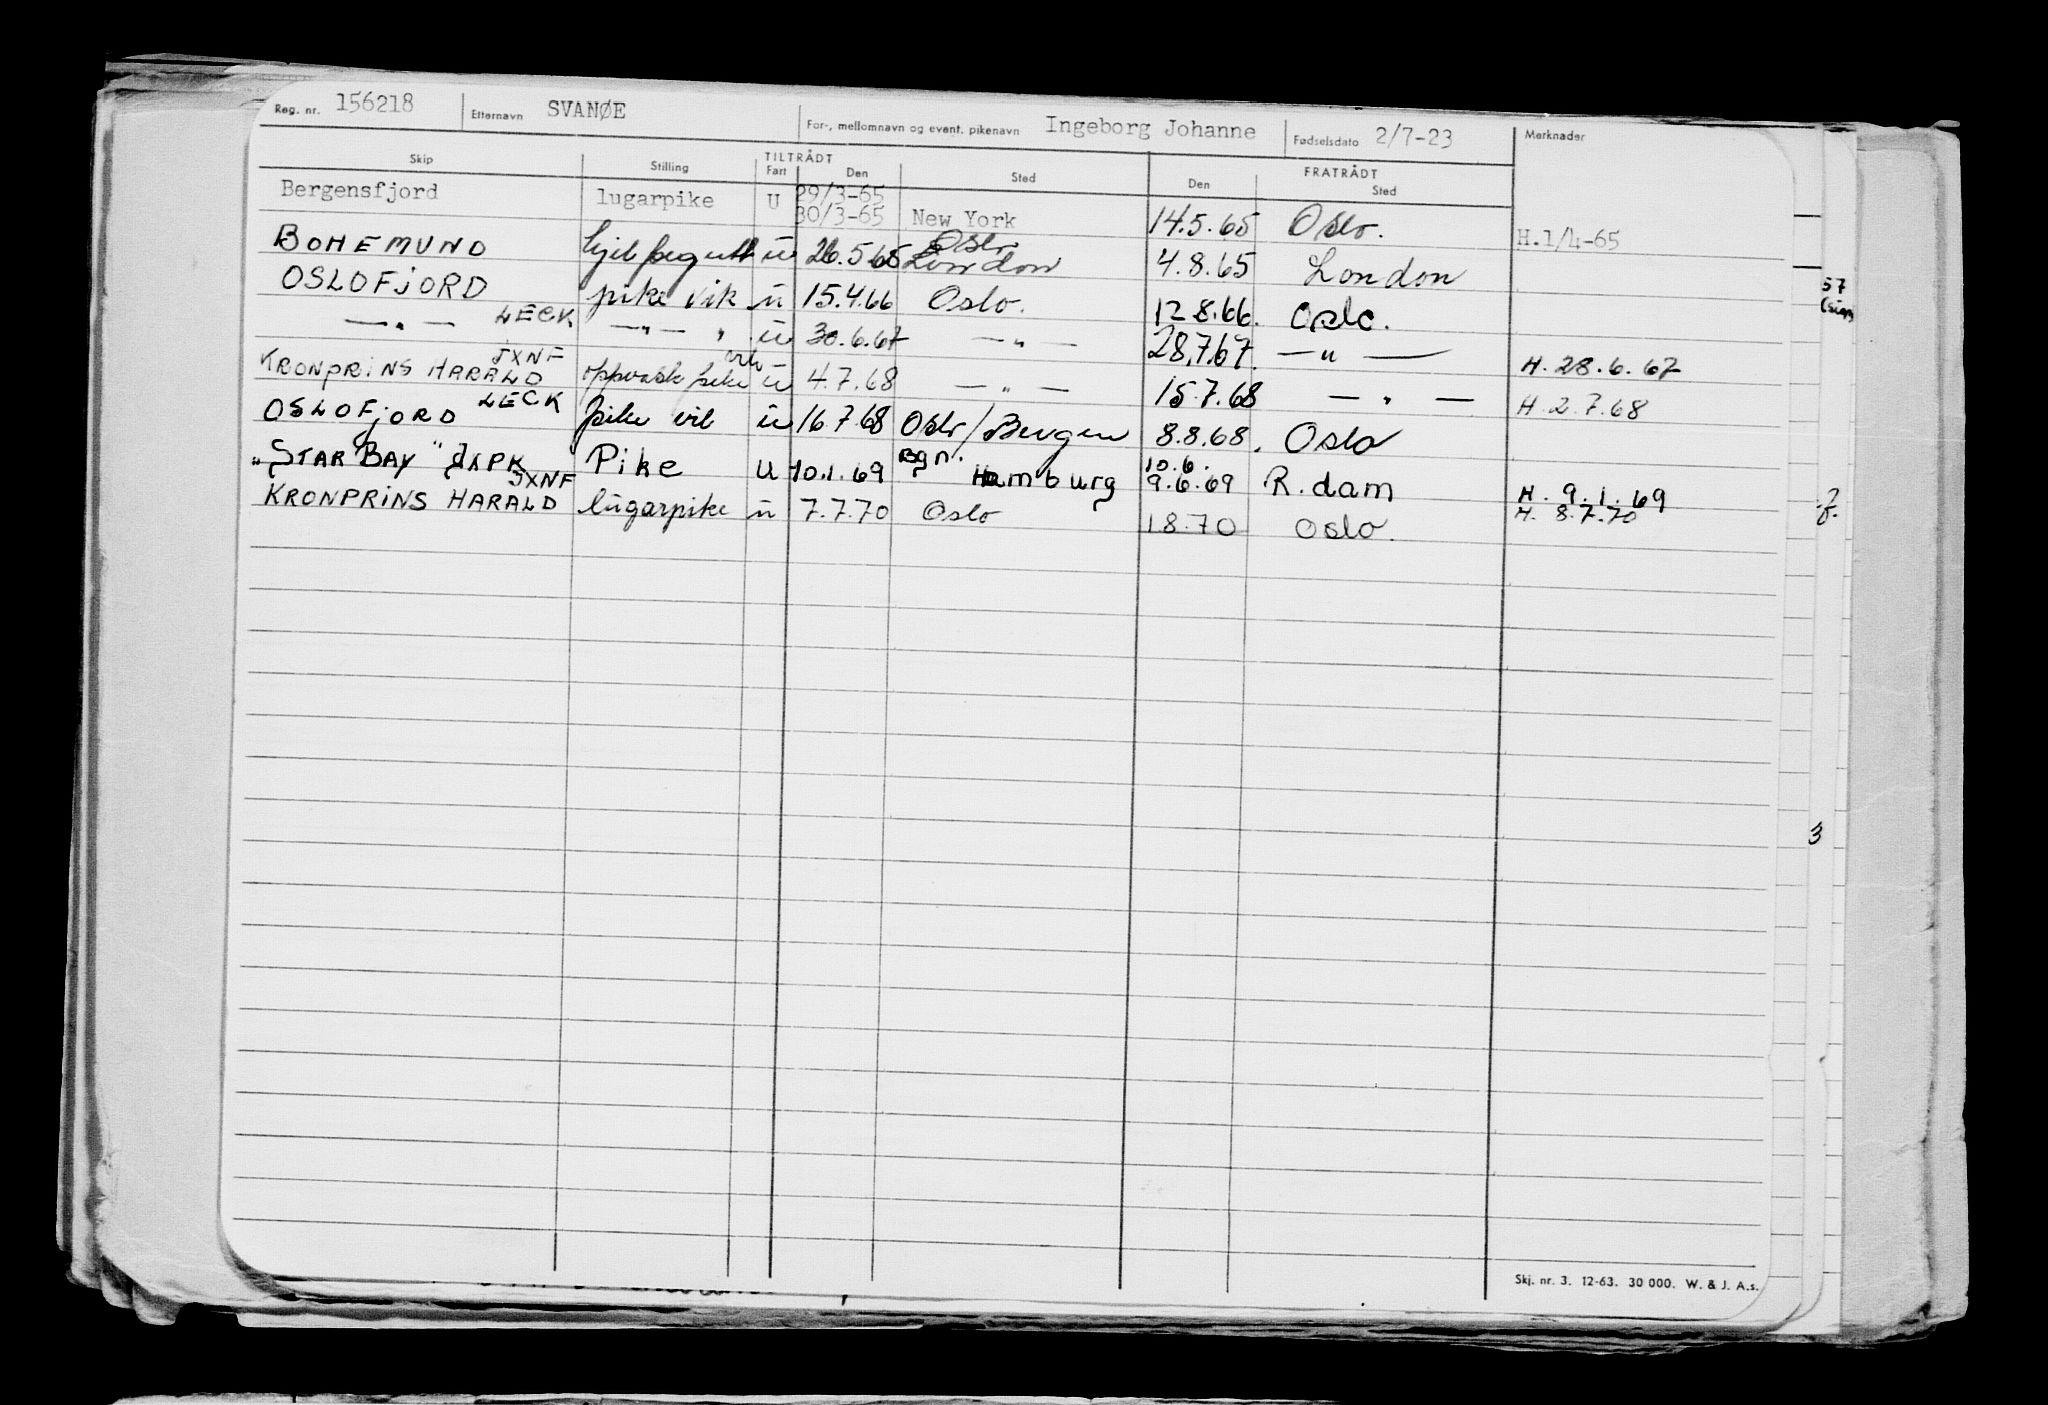 Reg. nr. 156218 Etternavn SVANØE For-, mellomnavn og event. pikenavn Ingeborg Johanne Fødselsdato 2/7-23 Merknader
TILTRÅDT FRATRÅDT
Skip Stilling Fart Den Sted Den Sted
Bergensfjord lugarpike U 29/3-65
30/3-65 New York 14.5.65 Oslo. H.1/4-65
BOHEMUND ü 26.5.65 Oslo London 4.8.65 London
OSLOFJORD pike vik ü 15.4.66 Oslo. 12.8.66. Oslo.
—„— LECK —„— „ ü 30.6.67 —„— 28.7.67. —„— H. 28.6.67
KRONPRINS HARALD JXNF oppvask pike vik ü 4.7.68 —„— 15.7.68 —„— H. 2.7.68
OSLOFJORD LECK pike vik ü 16.7.68 Oslo/Bergen 8.8.68. Oslo
"STAR BAY" Pike U 10.1.69 Bgn. Hamburg 10.6. 9.6.69 R.dam H. 9.1.69
KRONPRINS HARALD JXNF lugarpike ü 7.7.70 Oslo 1.8.70 Oslo. H. 8.7.70
57
3
Skj. nr. 3. 12-63. 30 000. W. & J. A.s.